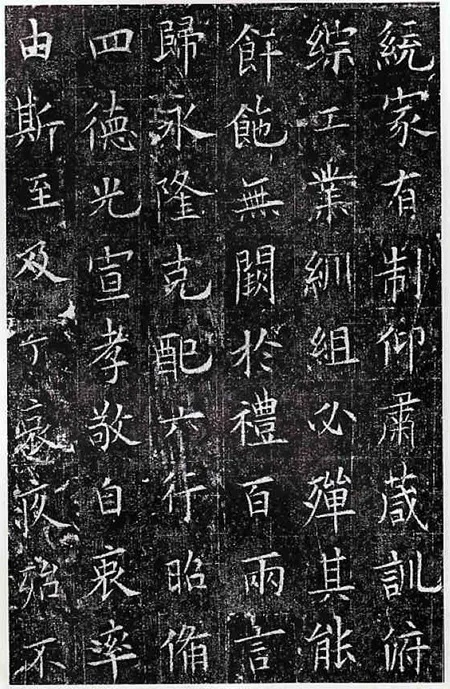 統家有制仰肅葴訓俯
綜工業紃組必殫其能
餅無闕於禮百兩言
歸永隆克配六行昭俻
四德光宣孝敬自衷率
由斯至及丁哀疚殆不